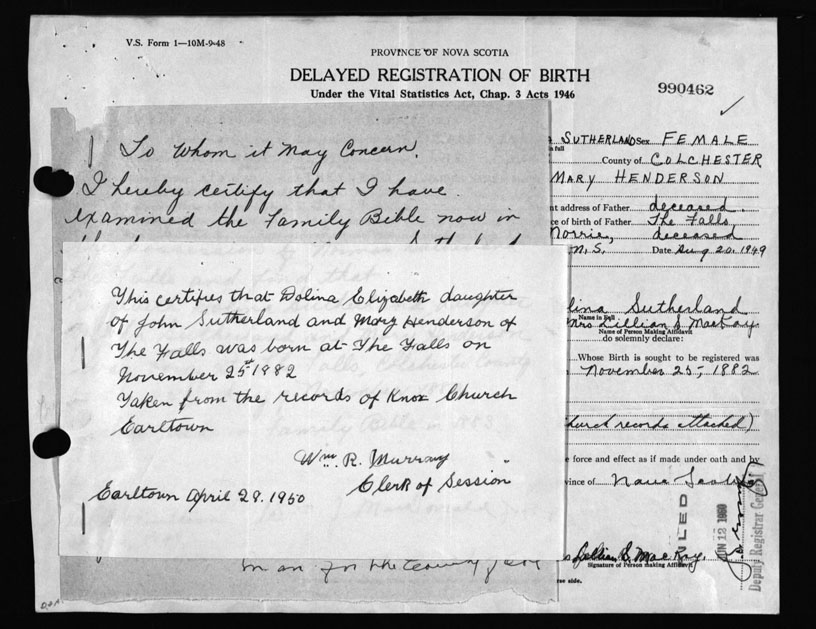 V.S. Form 1—10M-9-48
PROVINCE OF NOVA SCOTIA
DELAYED REGISTRATION OF BIRTH
Under the Vital Statistics Act, Chap. 3 Acts 1946
990462
SUTHERLAND Sex FEMALE
in full
County of COLCHESTER
MARY HENDERSON
address of Father deceased.
of birth of Father The Falls
deceased
N.S. Date Aug 20, 1949
To Whom it May Concern,
I hereby certify that I have
examined the Family Bible now in
This certifies that Dolina Elizabeth daughter
of John Sutherland and Mary Henderson of
The Falls was born at The Falls on
November 25st 1882
Taken from the records of Knox Church
Earltown
Wm. R. Murray
Clerk of Session
Earltown April 28. 1950
Sutherland
Name in Full
Mrs Lillian
Name of Person Making Affidavit
do solemnly declare:
Whose Birth is sought to be registered was
November 25, 1882
church records attached)
force and effect as if made under oath and by
of Nova Scotia
Signature of Person making Affidavit
side.
JUN 12 1950
Deputy Registrar General